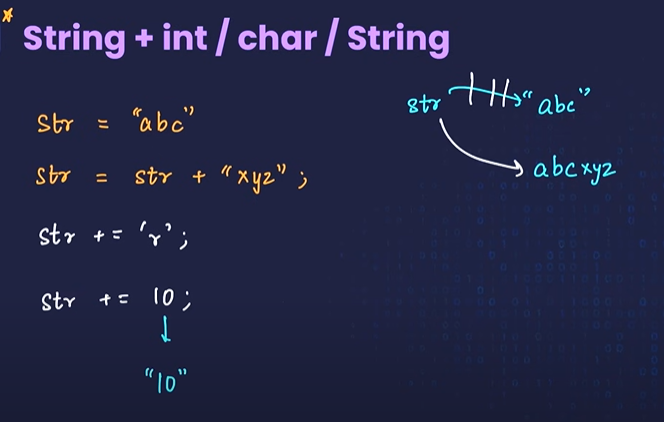 String + int / char / String
str = "abc"
str = str + "xyz" ;
str += 'r' ;
str += 10 ;
"10"
str "abc"
abcxyz